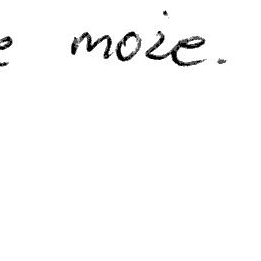 e może.